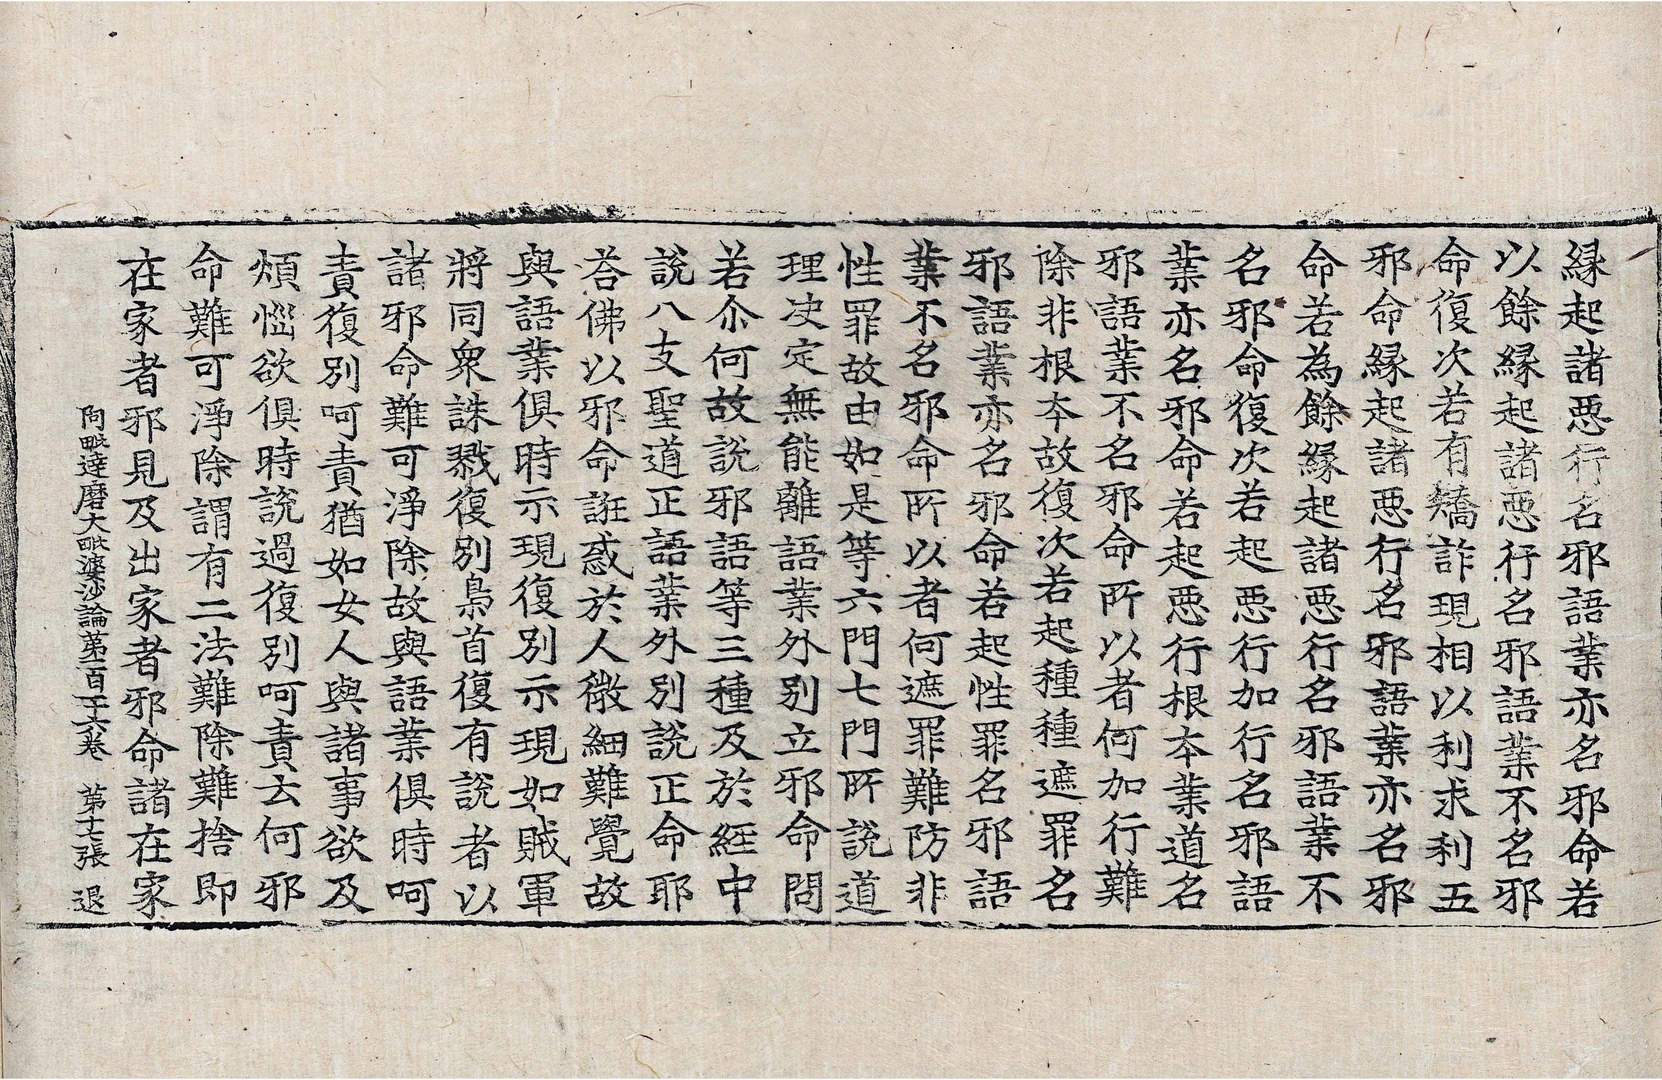 緣起諸惡行名邪語業亦名邪命若
以餘緣起諸惡行名邪語業不名邪
命復次若有矯詐現相以利求利五
邪命緣起諸惡行名邪語業亦名邪
命若為餘緣起諸惡行名邪語業不
名邪命復次若起惡行加行名邪語
業亦名邪命若起惡行根本業道名
邪語業不名邪命所以者何加行難
除非根本故復次若起種種遮罪名
邪語業亦名邪命若起性罪名邪語
業不名邪命所以者何遮罪難防非
性罪故由如是等六門七門所說道
理决定無能離語業外別立邪命問
若尒何故說邪語等三種及於經中
說八支聖道正語業外別說正命耶
荅佛以邪命誑惑於人微細難覺故
與語業俱時示現復別示現如賊軍
將同眾誅戮復別梟首復有說者以
諸邪命難可淨除故與語業俱時呵
責復別呵責猶如女人與諸事欲及
煩惱欲俱時說過復別呵責云何邪
命難可淨除謂有二法難除難捨即
在家者邪見及出家者邪命諸在家
阿毗達磨大毗婆沙論第一百一十六卷 第十七張 退